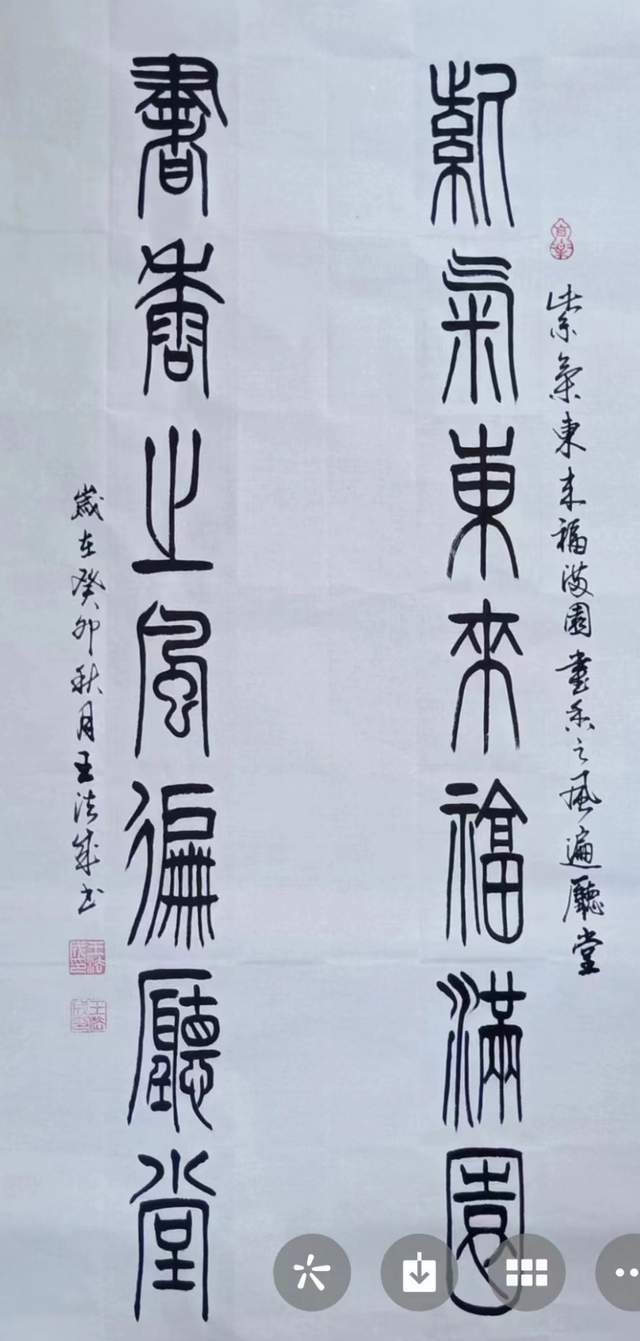 紫氣東来福满園書香之風遍廳堂
紫氣東來福滿園
書香之風徧廳堂
歲在癸卯秋月王法成书